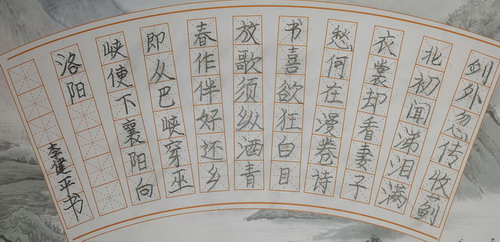 剑外忽传收蓟
北初闻涕泪满
衣裳却看妻子
愁何在漫卷诗
书喜欲狂白日
放歌须纵酒青
春作伴好还乡
即从巴峡穿巫
峡便下襄阳向
洛阳
李建平书